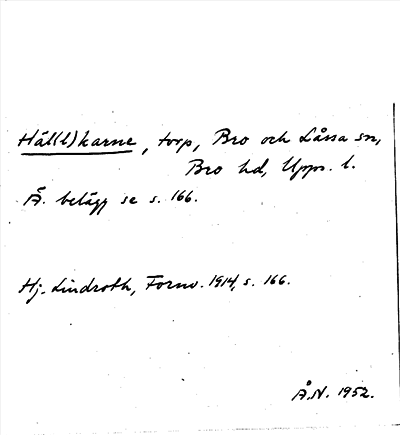 Häl(l)karne, torp, Bro och Låssa sn,
Bro hd, Upps. l.
Ä. belägg se s. 166.
Hj. Lindroth, Fornv. 1914, s. 166.
Å.N. 1952.